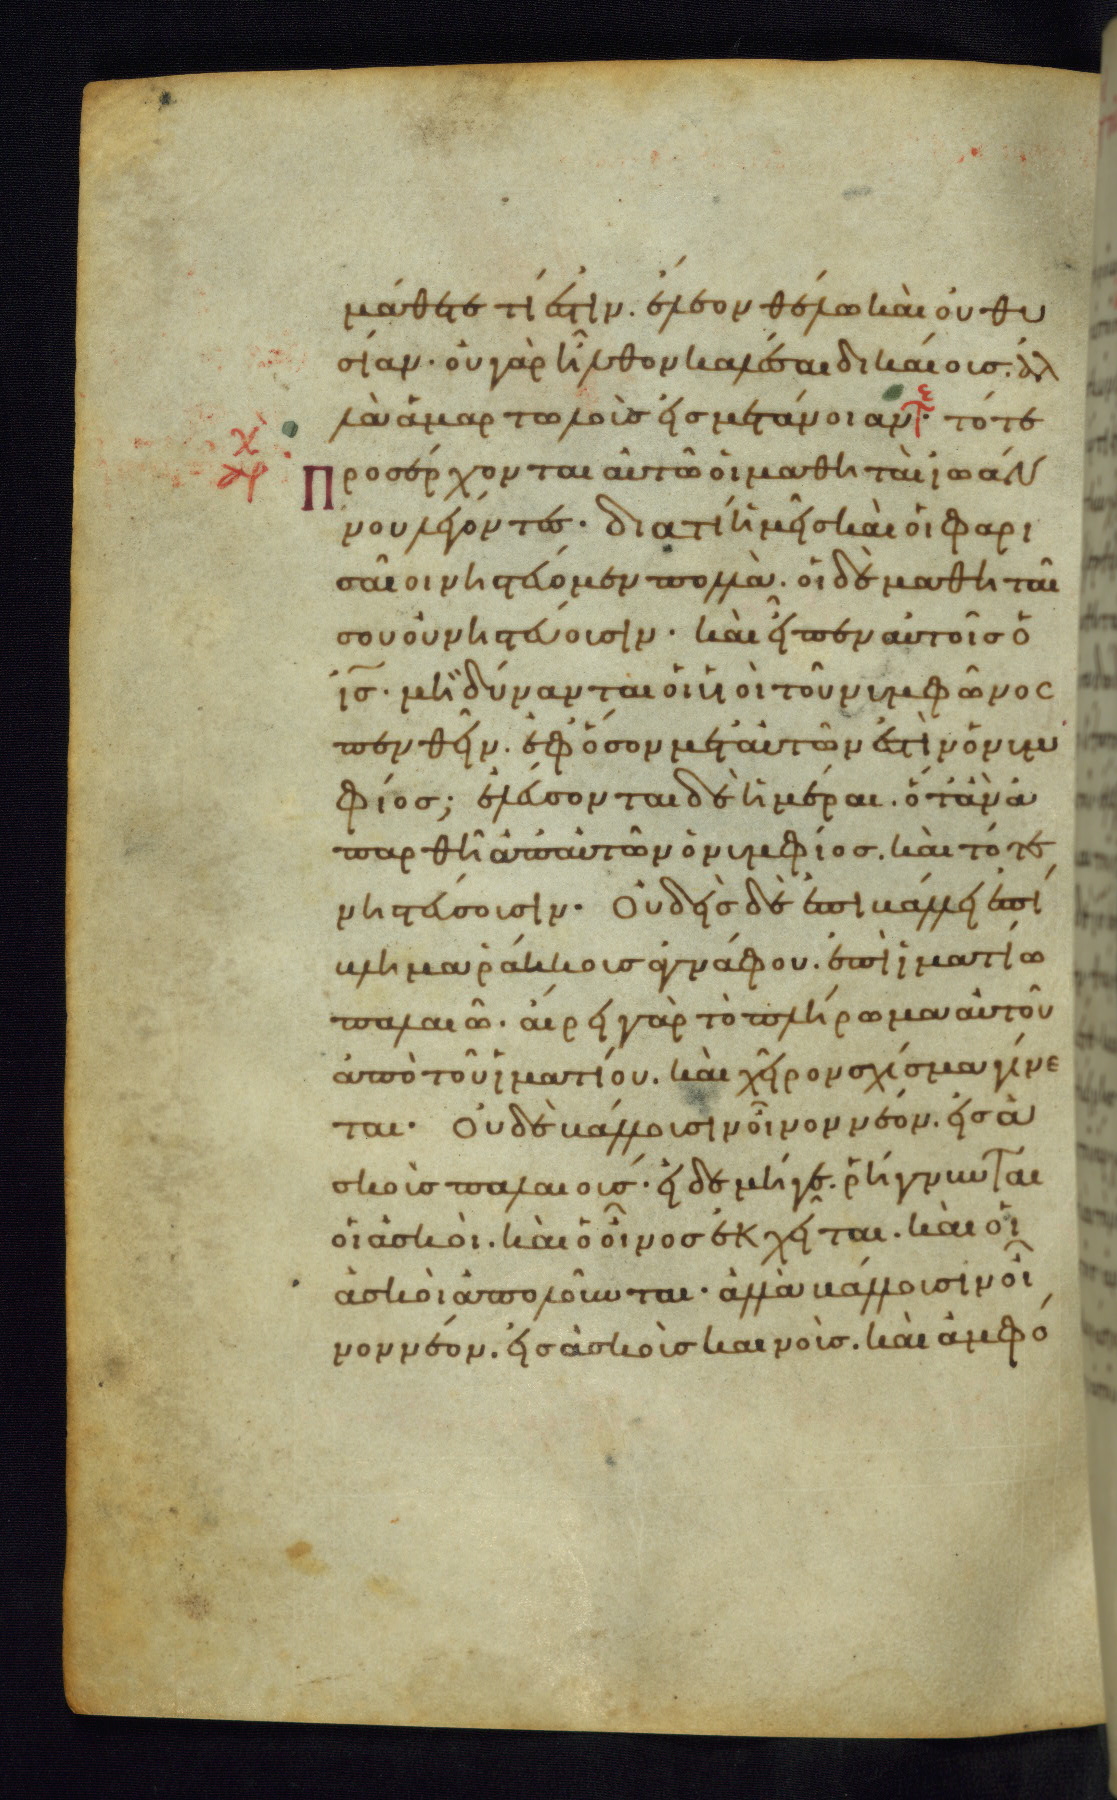 μάθετε τί ἐστιν. ἔλεον θέλω καὶ οὐ θυ
σίαν· οὐ γὰρ ἦλθον καλέσαι δικαίοις. ἀλ
λὰ ἁμαρτωλοὶς εἰς μετάνοιαν· τότε
Προσέρχονται αὐτῶ οἱ μαθηταὶ ἰωάν
νου λέγοντες· διατί ἡμεῖς καὶ οἱ φαρι
σαῖοι νηστεύομεν πολλὰ. οἱ δὲ μαθηταῖ
σου οὐ νηστεύουσιν· καὶ εἶπεν αὐτοῖς ὁ
ι̅ς̅· μὴ δύνανται οἱ υἱοὶ τοῦ νυμφῶνος
πενθεῖν. ἐφ ὅσον μετ αὐτῶν ἐστὶν ὁ νυμ
φίος; ἐλεύσονται δὲ ἡμέραι. ὅταν ἀ
παρθῆ ἀπ αὐτῶν ὁ νυμφίος. καὶ τότε
νηστεύσουσιν· Οὐδεὶς δὲ ἐπικάλλει ἐπί
κλημα ράκκους ἀγνάφου. ἐπὶ ἱματίω
παλαιῶ· αἴρει γὰρ τὸ πλήρωμα αὐτοῦ
ἀπὸ τοῦ ἱματίου. καὶ χεῖρον σχίσμα γίνε
ται· Οὐδὲ κάλλουσιν οἶνον νέον. εἰς ἀ
σκοὺς παλαιούς· εἰ δὲ μήγε. ῥήγνυνται
οἱ ἀσκοὶ. καὶ ὁ οἶνος ἐκχεῖται. καὶ οἱ
ἀσκοὶ ἀπολοῦνται· ἀλλὰ κάλλουσιν οἶ
νον νέον. εἰς ἀσκοὺς καινοὺς. καὶ ἀμφό